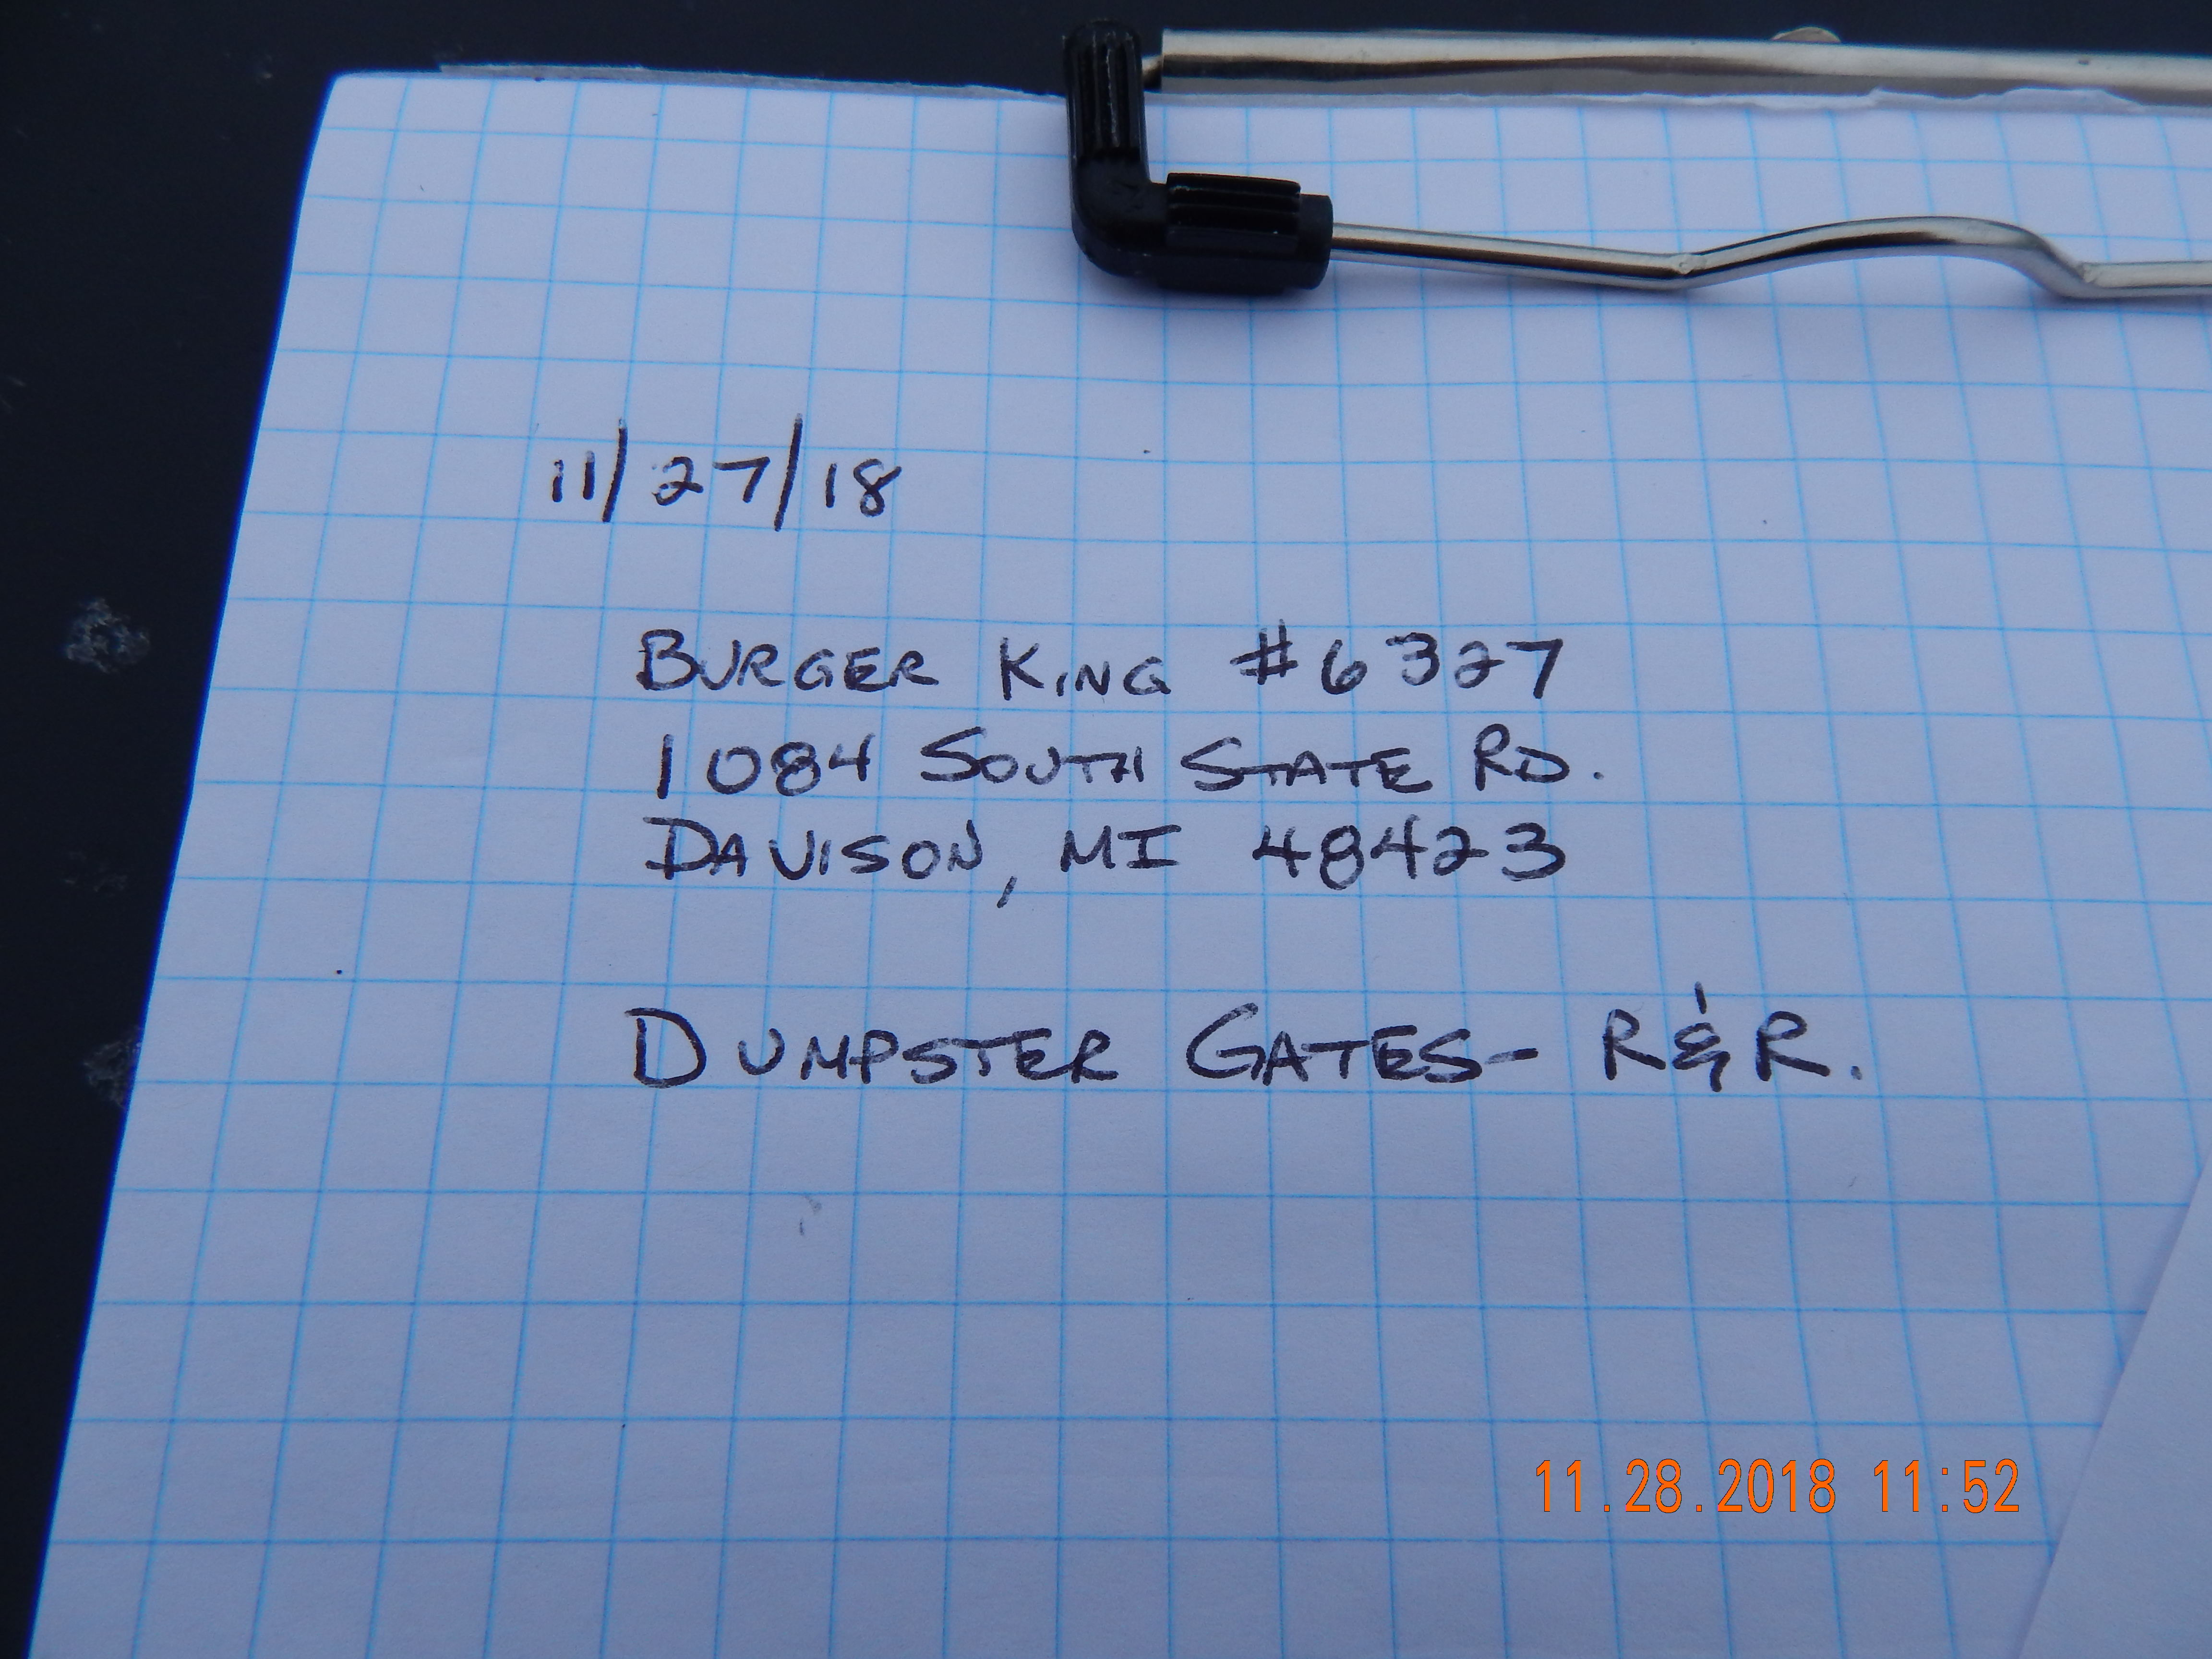 11/27/18
BURGER KING #6327
1084 SOUTH STATE RD.
DAVISON, MI 48423
DUMPSTER GATES- R&R.
11.28.2018 11:52